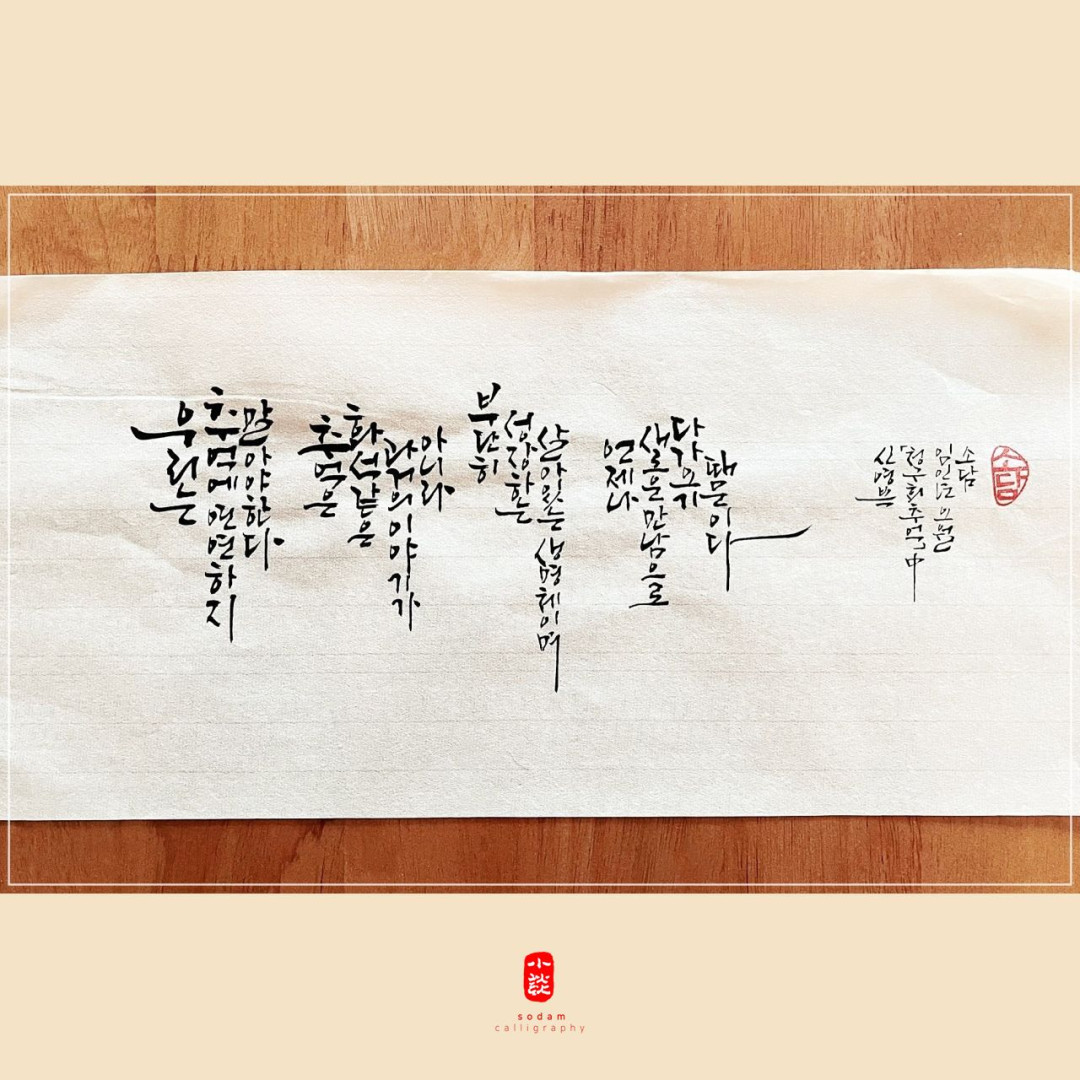 우리는
추억에 연연하지
말아야한다
추억은
화석같은
과거의 이야기가
아니라
부단히
성장하는
살아있는 생명체이며
언제나
새로운 만남으로
다가오기
때문이다
신영복
「청구회 추억」中
임인년 오월
소담
소담
小談
sodam
calligraphy